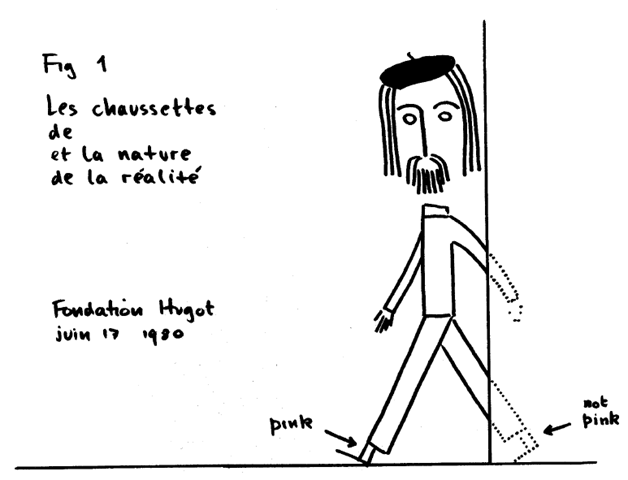 Fig 1
Les chaussettes
de
et la nature
de la réalité
Fondation Hugot
juin 17 1980
pink
not
pink